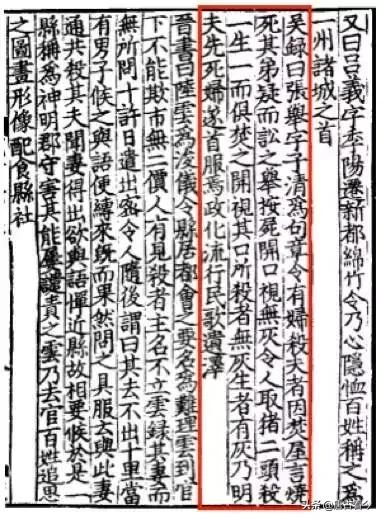 又曰呂義字季陽遷新都綿竹令乃心隱恤百姓稱之爲
一州諸城之首
吳錄曰張舉字子清爲句章令有婦殺夫者因焚屋言燒
死其弟疑而訟之舉按死開口視無灰令人取猪二頭殺
一生一而俱焚之開視其口所殺者無灰生者有灰乃明
夫先死婦遂首服焉政化流行民歌遺澤
晉書曰陸雲爲浚儀令縣居都會之要名爲難理雲到官
下不能欺市無二價人有見殺者主名不立雲錄其妻而
無所問十許日遣出密令人隨後謂曰其去不出十里當
有男子候之與語便縛來既而果然問之具服云與此妻
通共殺其夫聞妻得出欲與語憚近縣故相要候於是一
縣稱爲神明郡守害其能屢譴責之雲乃去官百姓追思
之圖畫形像配食縣社
头条